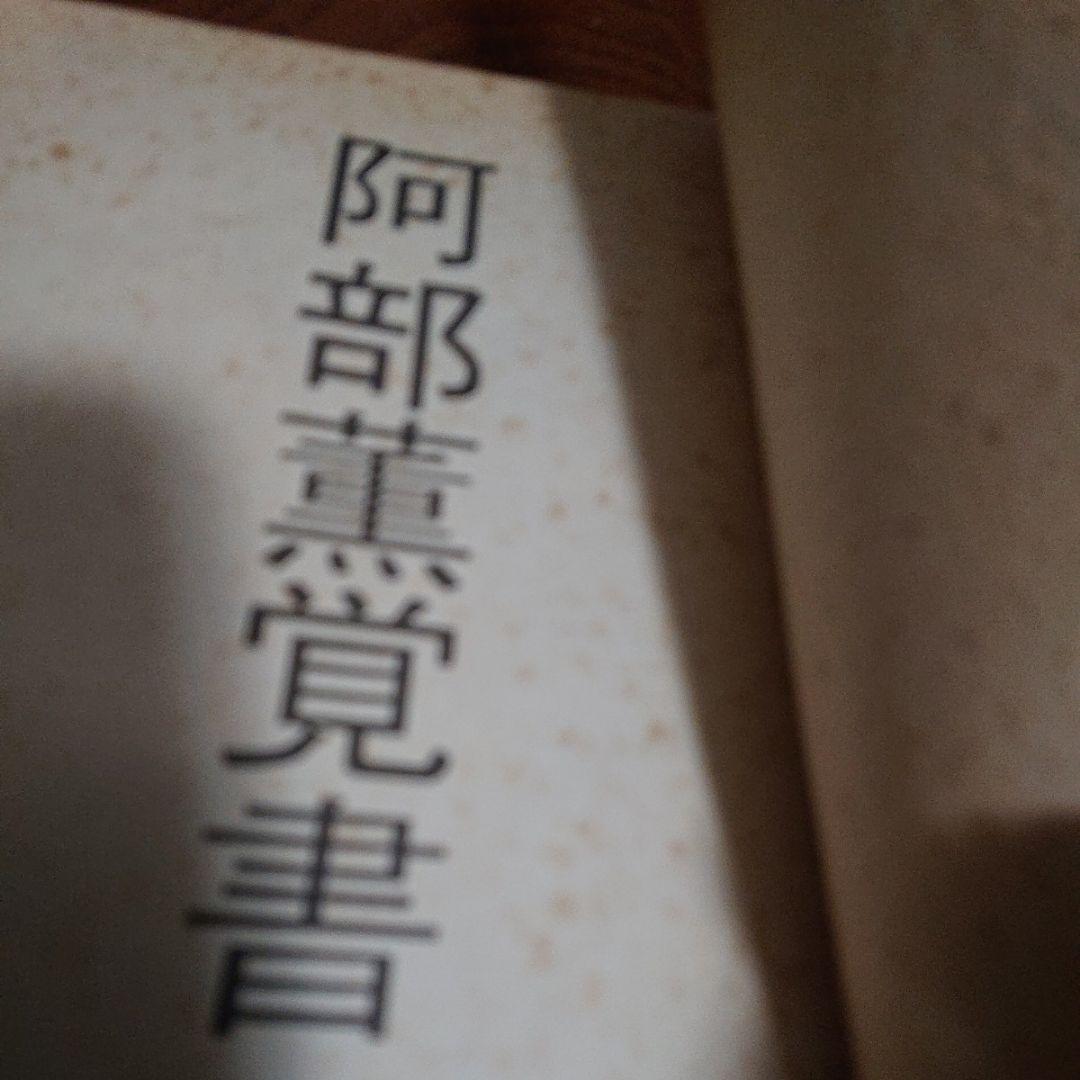 阿部薫覚書